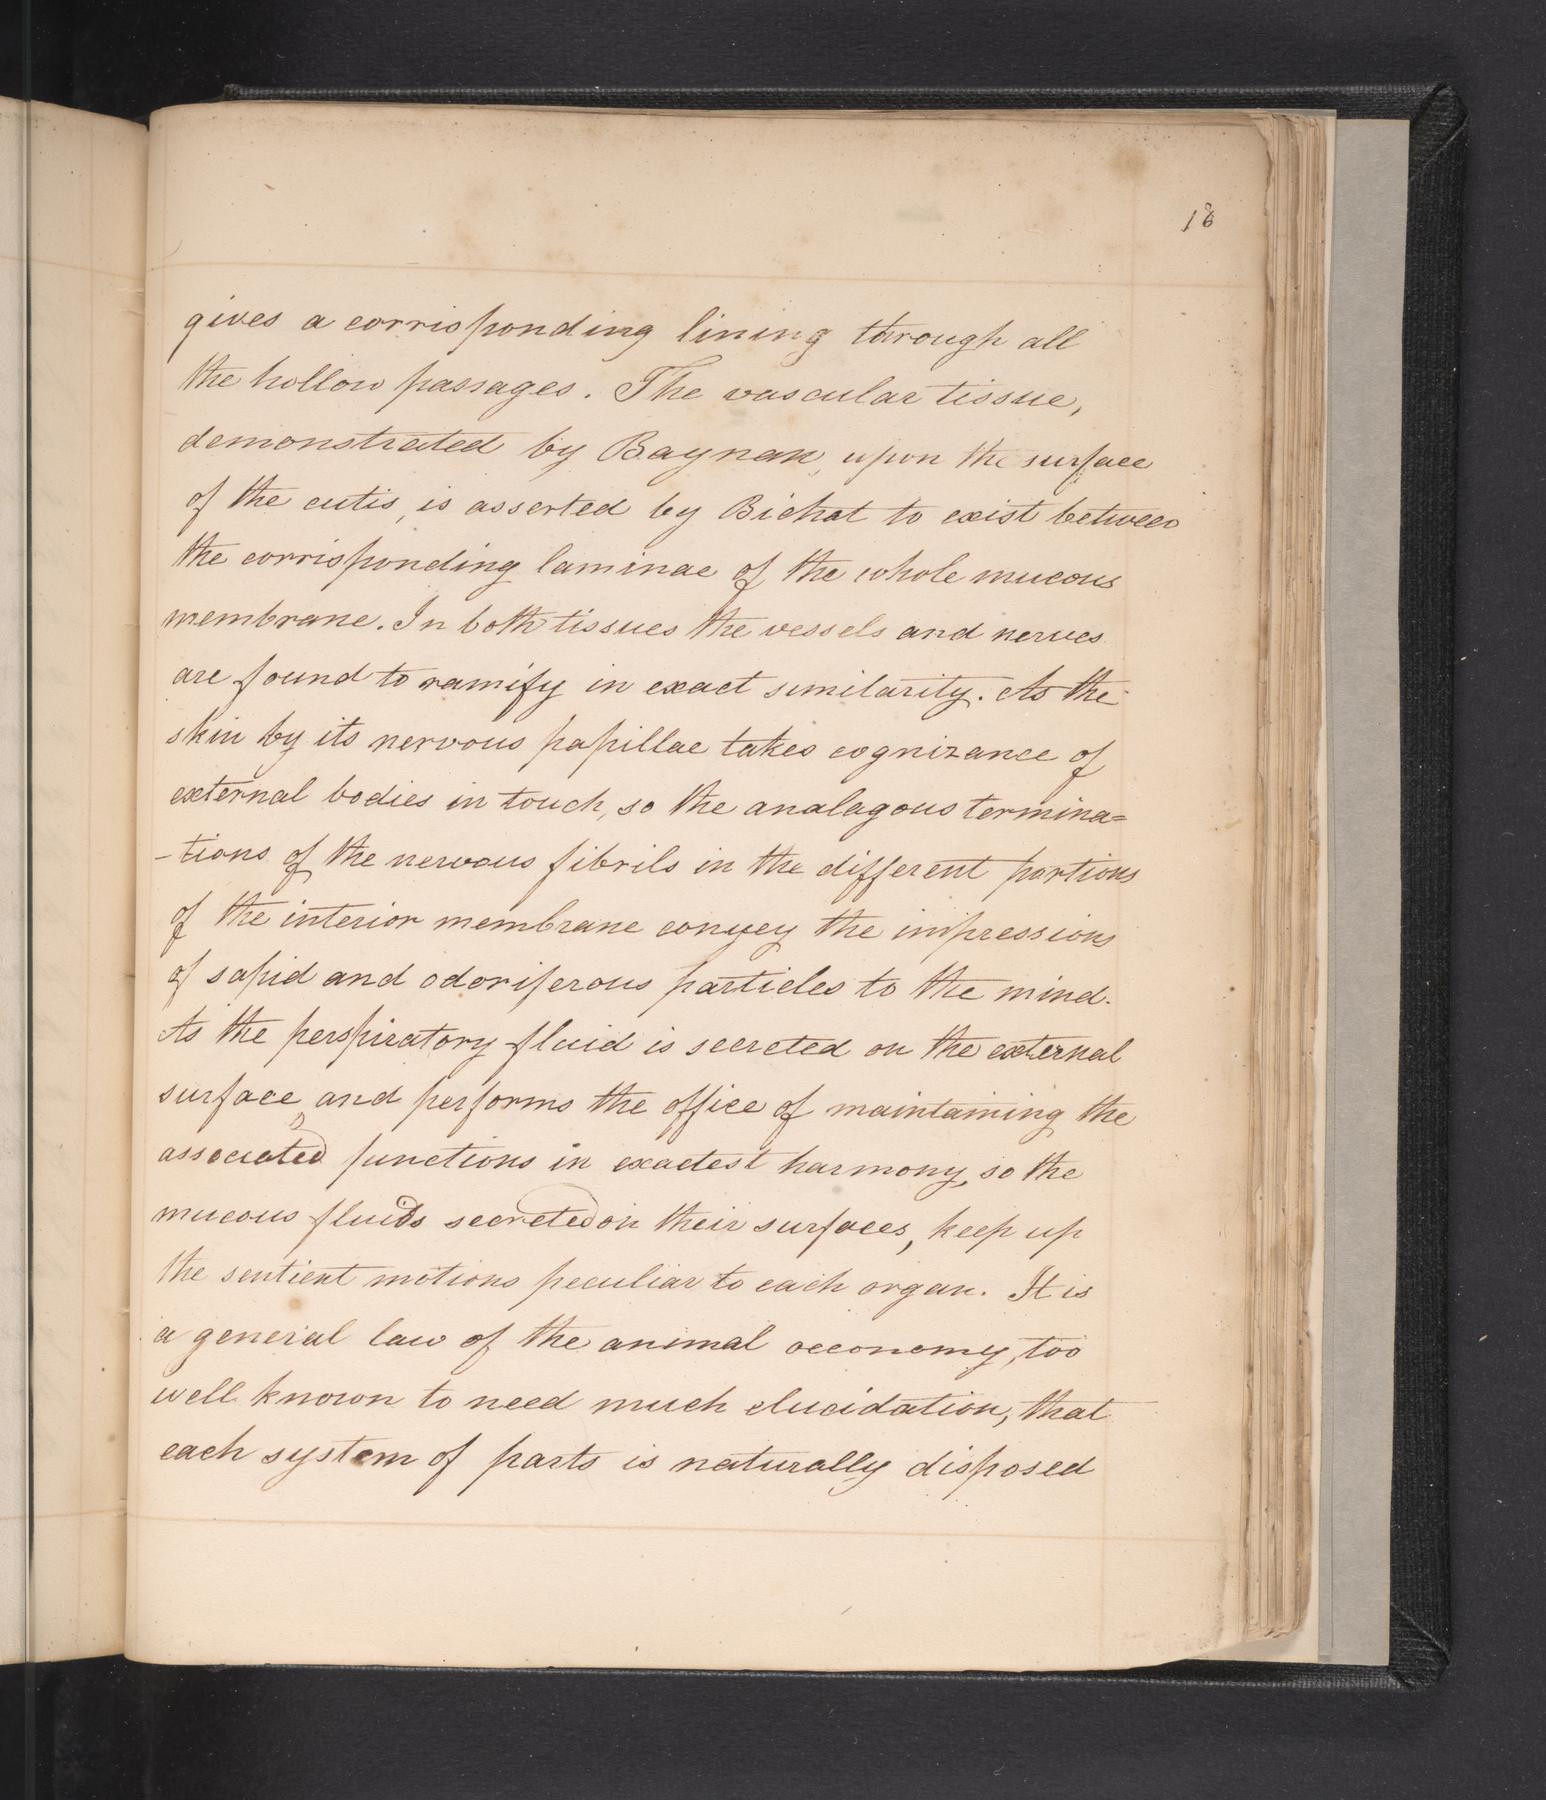 18
gives a corrisponding lining through all
the hollow passages. The vascular tissue,
demonstrated by Baynan, upon the surface
of the cutis, is asserted by Bichat to exist between
the corrisponding laminae of the whole mucous
membrane. In both tissues the vessels and nerves
are found to ramify in exact similarity. As the
skin by its nervous papillae takes cognizance of
external bodies in touch, so the analagous termina=
-tions of the nervous fibrils in the different portions
of the interior membrane convey the impressions
of sapid and odoriferous particles to the mind.
As the perspiratory fluid is secreted on the external
surface and performs the office of maintaining the
associated functions in exactest harmony, so the
mucous fluids secreted on their surfaces, keep up
the sentient motions peculiar to each organ. It is
a general law of the animal oeconomy, too
well known to need much elucidation, that
each system of parts is naturally disposed